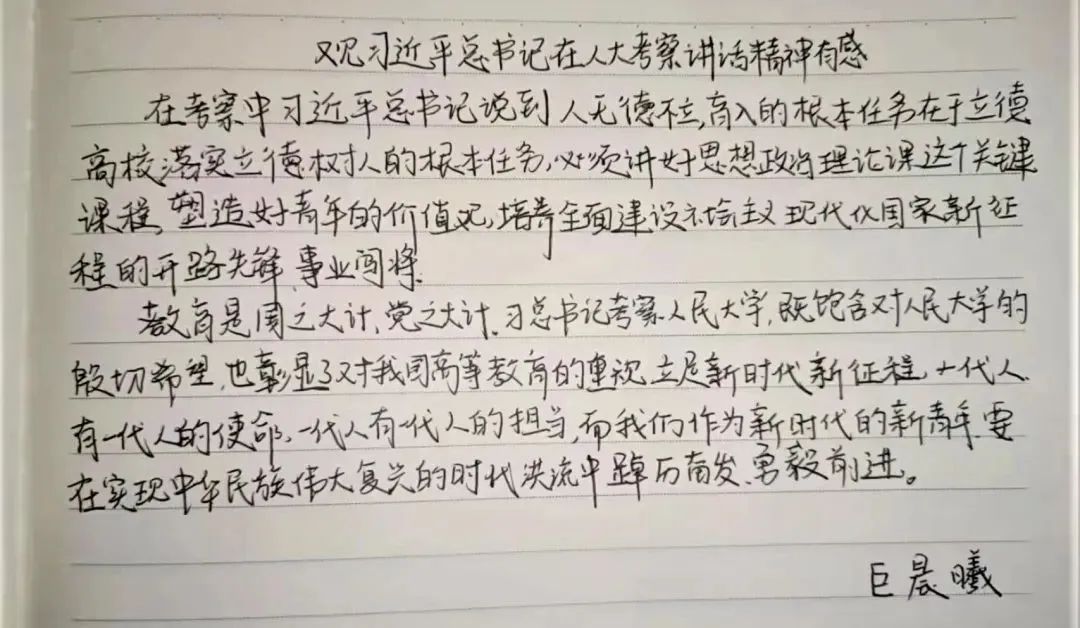 观习近平总书记在人大考察讲话精神有感
在考察中习近平总书记说到人无德不立,育人的根本任务在于立德
高校落实立德树人的根本任务,必须讲好思想政治理论课这个关键
课程,塑造好青年的价值观,培养全面建设社会主义现代化国家新征
程的开路先锋,事业闯将.
教育是国之大计,党之大计.习总书记考察人民大学,既饱含对人民大学的
殷切希望,也彰显了对我国高等教育的重视.立足新时代新征程,一代人
有一代人的使命、一代人有一代人的担当,而我们作为新时代的新青年,要
在实现中华民族伟大复兴的时代洪流中踔厉奋发、勇毅前进。
巨晨曦